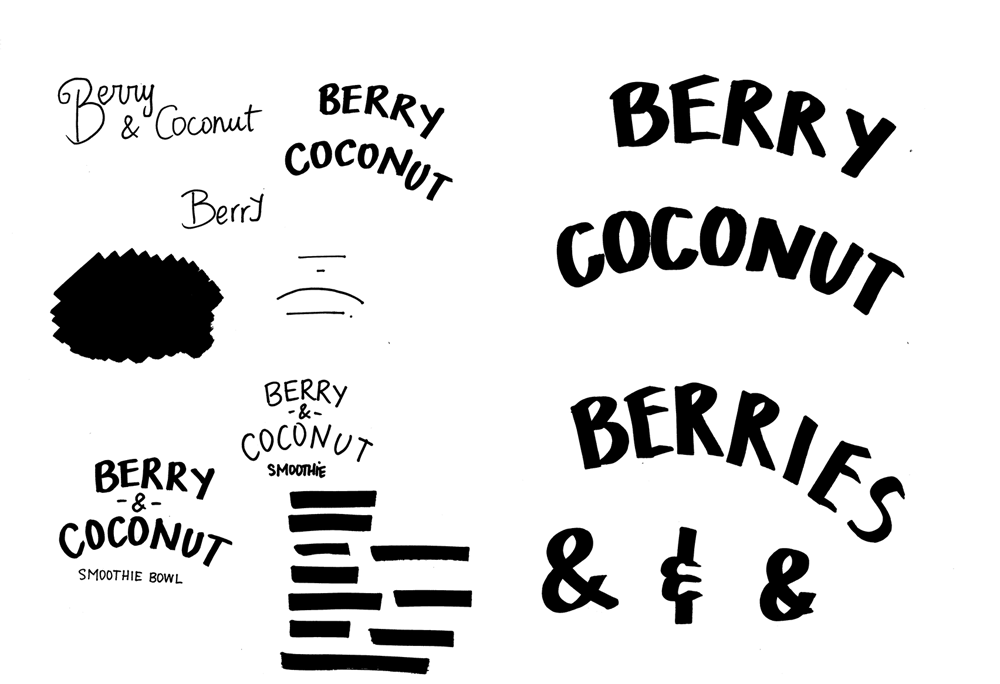 Berry
& Coconut
BERRY
COCONUT
Berry
BERRY
-&-
COCONUT
SMOOTHIE
BERRY
-&-
COCONUT
SMOOTHIE BOWL
BERRY
COCONUT
BERRIES
& & &